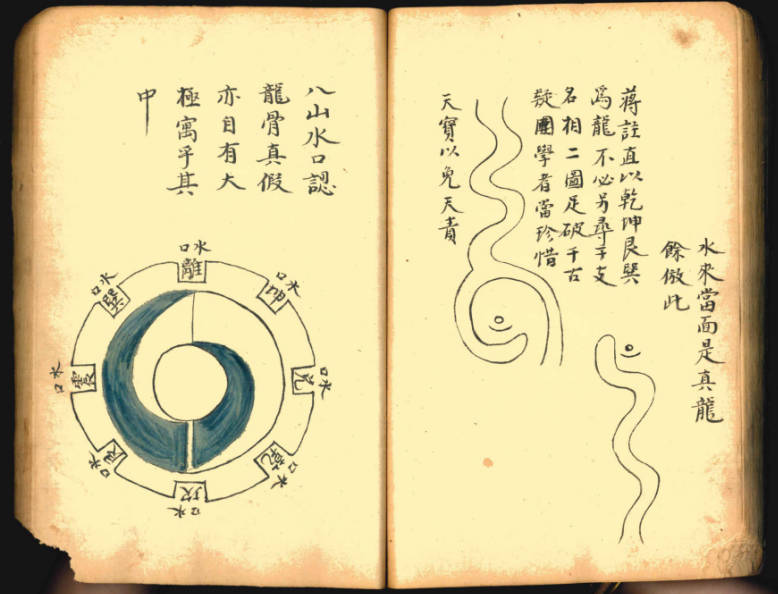 水來當面是真龍
餘倣此
蔣註直以乾坤艮巽
爲龍不必另尋干支
名相二圖足破千古
疑團學者當珍惜
天寶以免天責
八山水口認
龍骨真假
亦自有大
極寓乎其
中
水口
離
水口
坤
水口
兌
水口
乾
水口
坎
水口
艮
水口
震
水口
巽